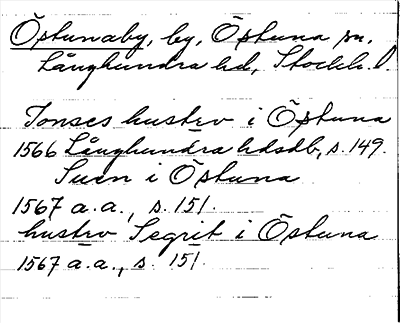 Östunaby, by, Östuna sn.
Långhundra hd, Stockh. l.
Jonses hustrv i Östuna
1566 Långhundra hdsdb, s. 149.
Suen i Östuna
1567 a.a., s. 151.
hustrv Segrit i Östuna
1567 a.a., s. 151.